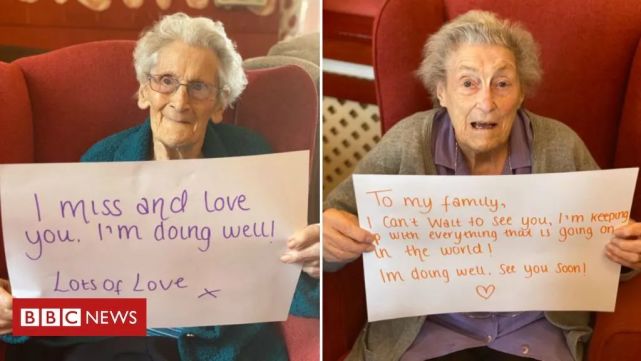 I miss and love
you. I'm doing well!
Lots of Love x
To my family,
I can't wait to see you, I'm keeping
up with everything that is going on
in the world!
Im doing well. See you soon!
BBC NEWS